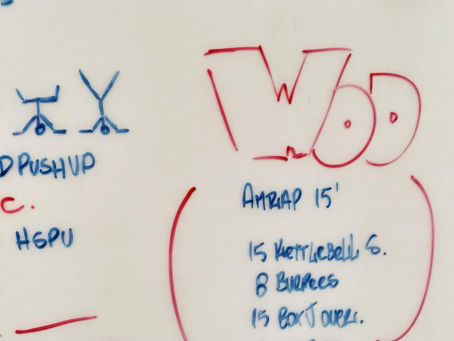 WOD
D PUSHUP
C.
HSPU
AMRAP 15'
15 KETTLEBELL S.
8 BURPEES
15 BOX J OVER.